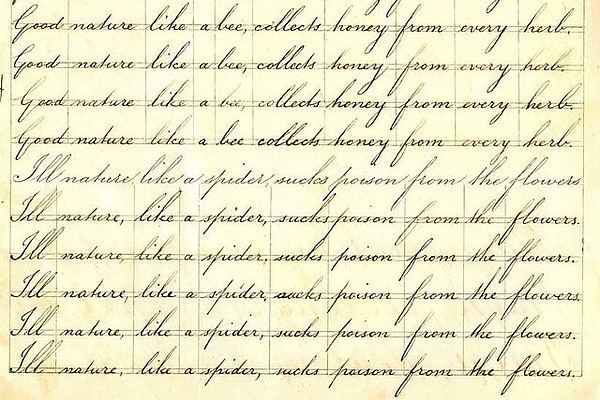 Good nature like a bee, collects honey from every herb.
Good nature like a bee, collects honey from every herb.
Good nature like a bee, collects honey from every herb.
Good nature like a bee collects honey from every herb.
Ill nature, like a spider, sucks poison from the flowers
Ill nature, like a spider, sucks poison from the flowers.
Ill nature, like a spider, sucks poison from the flowers.
Ill nature, like a spider, sucks poison from the flowers.
Ill nature, like a spider, sucks poison from the flowers.
Ill nature, like a spider, sucks poison from the flowers.